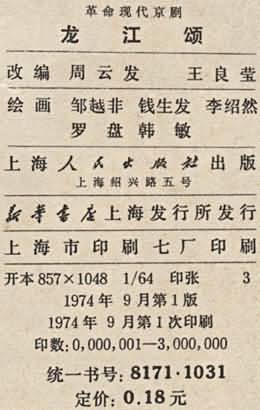 革命现代京剧
龙江颂
改编 周云发 王良莹
绘画 邹越非 钱生发 李绍然
罗盘 韩敏
上海人民出版社出版
上海绍兴路五号
新华书店上海发行所发行
上海市印刷七厂印刷
开本857×1048 1/64 印张 3
1974年9月第1版
1974年9月第1次印刷
印数:0,000,001—3,000,000
统一书号:8171·1031
定价:0.18元